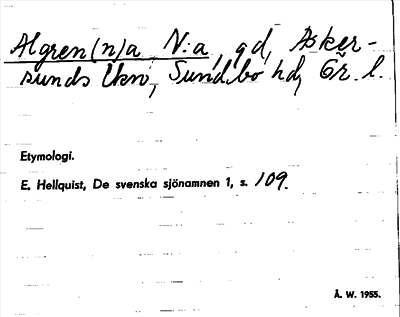 Algren(n)a N:a, gd, Asker-
sunds lkn, Sundbo hd, Ör. l.
Etymologi.
E. Hellquist, De svenska sjönamnen 1, s. 109.
Å. W. 1955.